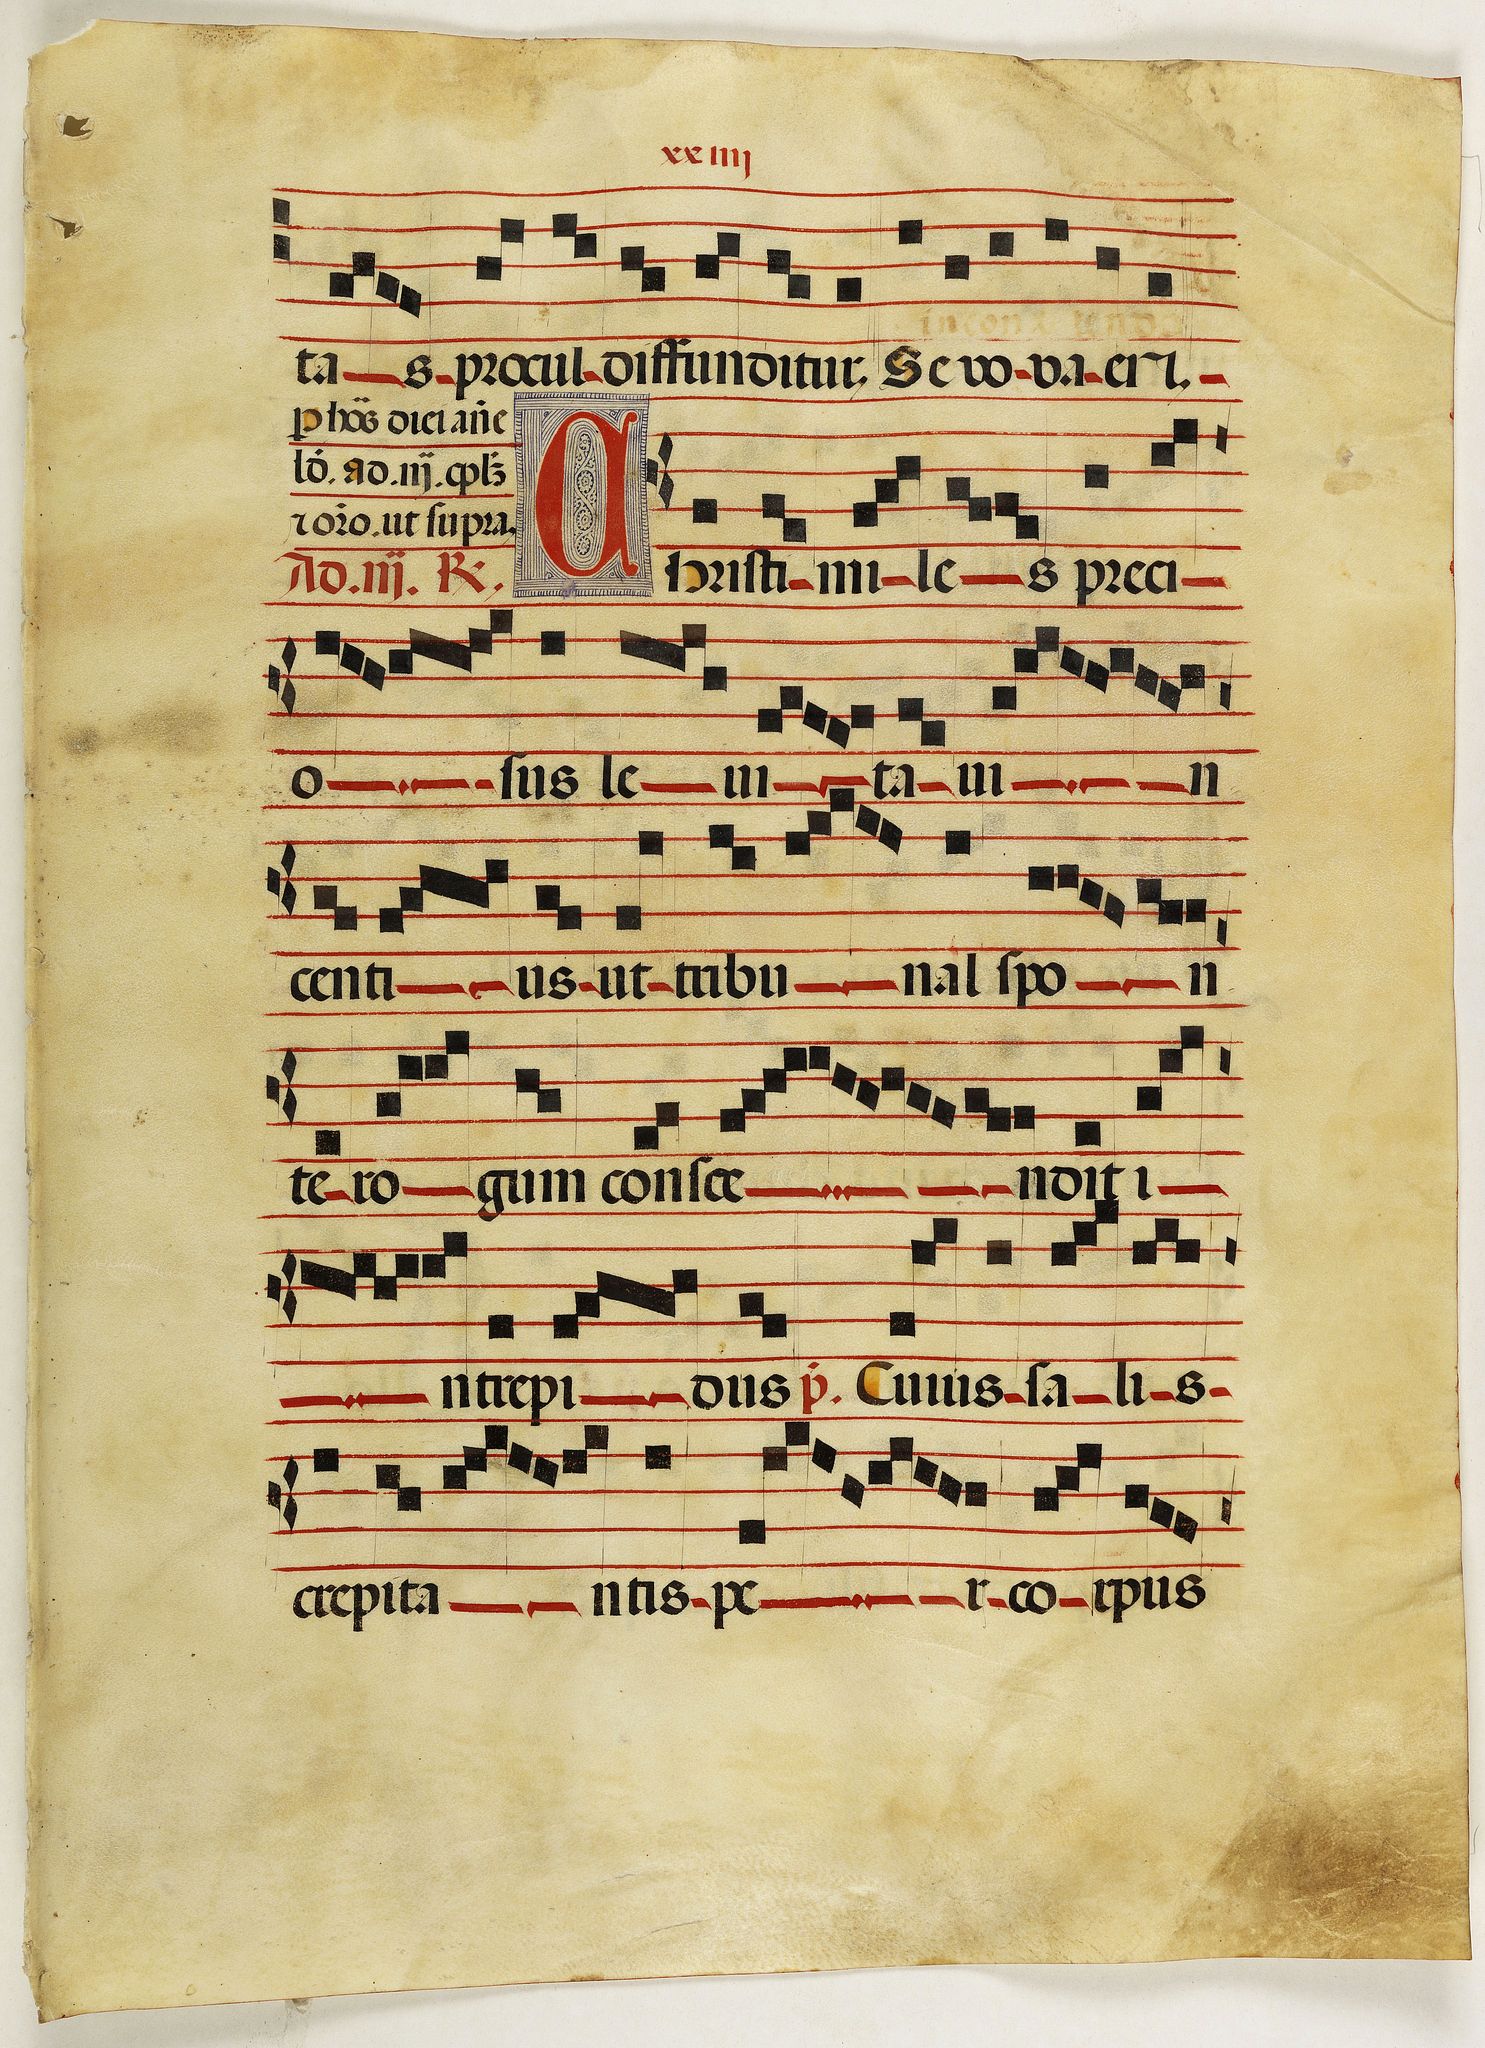 xxiiij
ta s procul diffunditur. Seuouaer
p hos diei añe
ld. ad .iij. cpls
roro. ut supra.
Ad .iij. R. Christi mile s preci
o sus le ui ta ui n
centi us ut tribu nal spo n
te ro gum consce ndit i
ntrepi dus p. Cuius sa li s
crepita ntis pe r co rpus